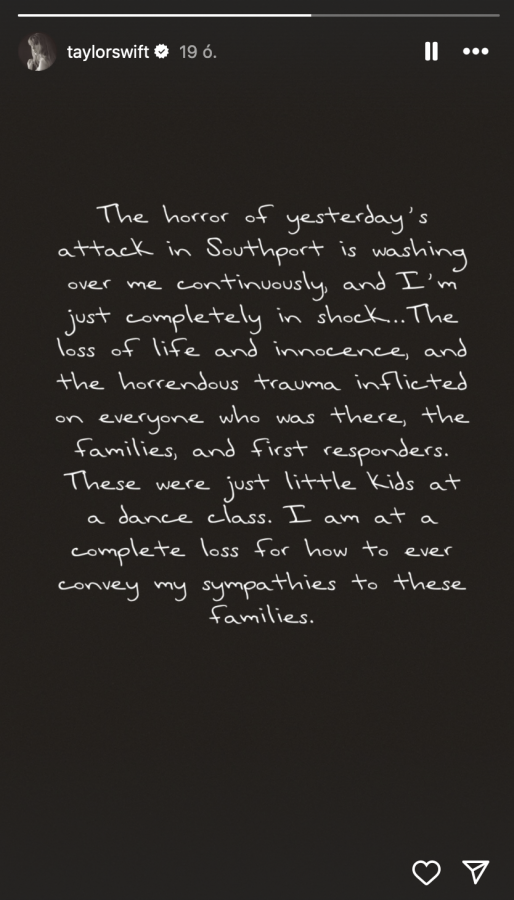 taylorswift 19 ó.
The horror of yesterday's
attack in Southport is washing
over me continuously, and I'm
just completely in shock...The
loss of life and innocence, and
the horrendous trauma inflicted
on everyone who was there, the
families, and first responders.
These were just little kids at
a dance class. I am at a
complete loss for how to ever
convey my sympathies to these
families.